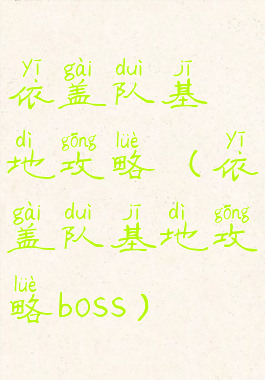 yī gài duì jī
依盖队基
dì gōng lüè yī
地攻略（依
gài duì jī dì gōng
盖队基地攻
lüè
略boss）